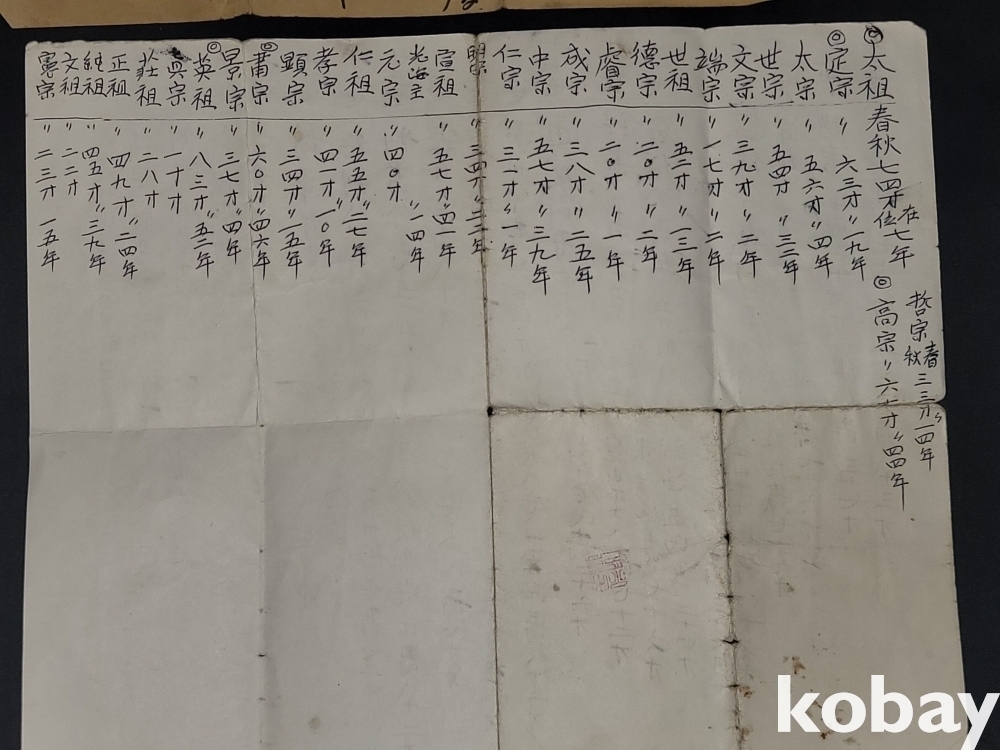 太祖 春秋七四才 在位七年
定宗 〃 六三才 〃 一九年
太宗 〃 五六才 〃 四年
世宗 〃 五四才 〃 三二年
文宗 〃 三九才 〃 二年
端宗 〃 一七才 〃 二年
世祖 〃 五二才 〃 一三年
德宗 〃 二〇才 〃 二年
睿宗 〃 二〇才 〃 一年
成宗 〃 三八才 〃 二五年
中宗 〃 五七才 〃 三九年
仁宗 〃 三一才 〃 一年
明宗 〃 三四才 〃 二二年
宣祖 〃 五七才 〃 四一年
光海主 〃 一四年
元宗 〃 四〇才
仁祖 〃 五五才 〃 二七年
孝宗 〃 四一才 〃 一〇年
顯宗 〃 三四才 〃 一五年
肅宗 〃 六〇才 〃 四六年
景宗 〃 三七才 〃 四年
英祖 〃 八三才 〃 五二年
眞宗 〃 一十才
莊祖 〃 二八才
正祖 〃 四九才 〃 二四年
純祖 〃 四五才 〃 三九年
文祖 〃 二二才
憲宗 〃 二三才 一五年
哲宗 春秋 三三才 〃 一四年
高宗 〃 六十才 〃 四四年
kobay